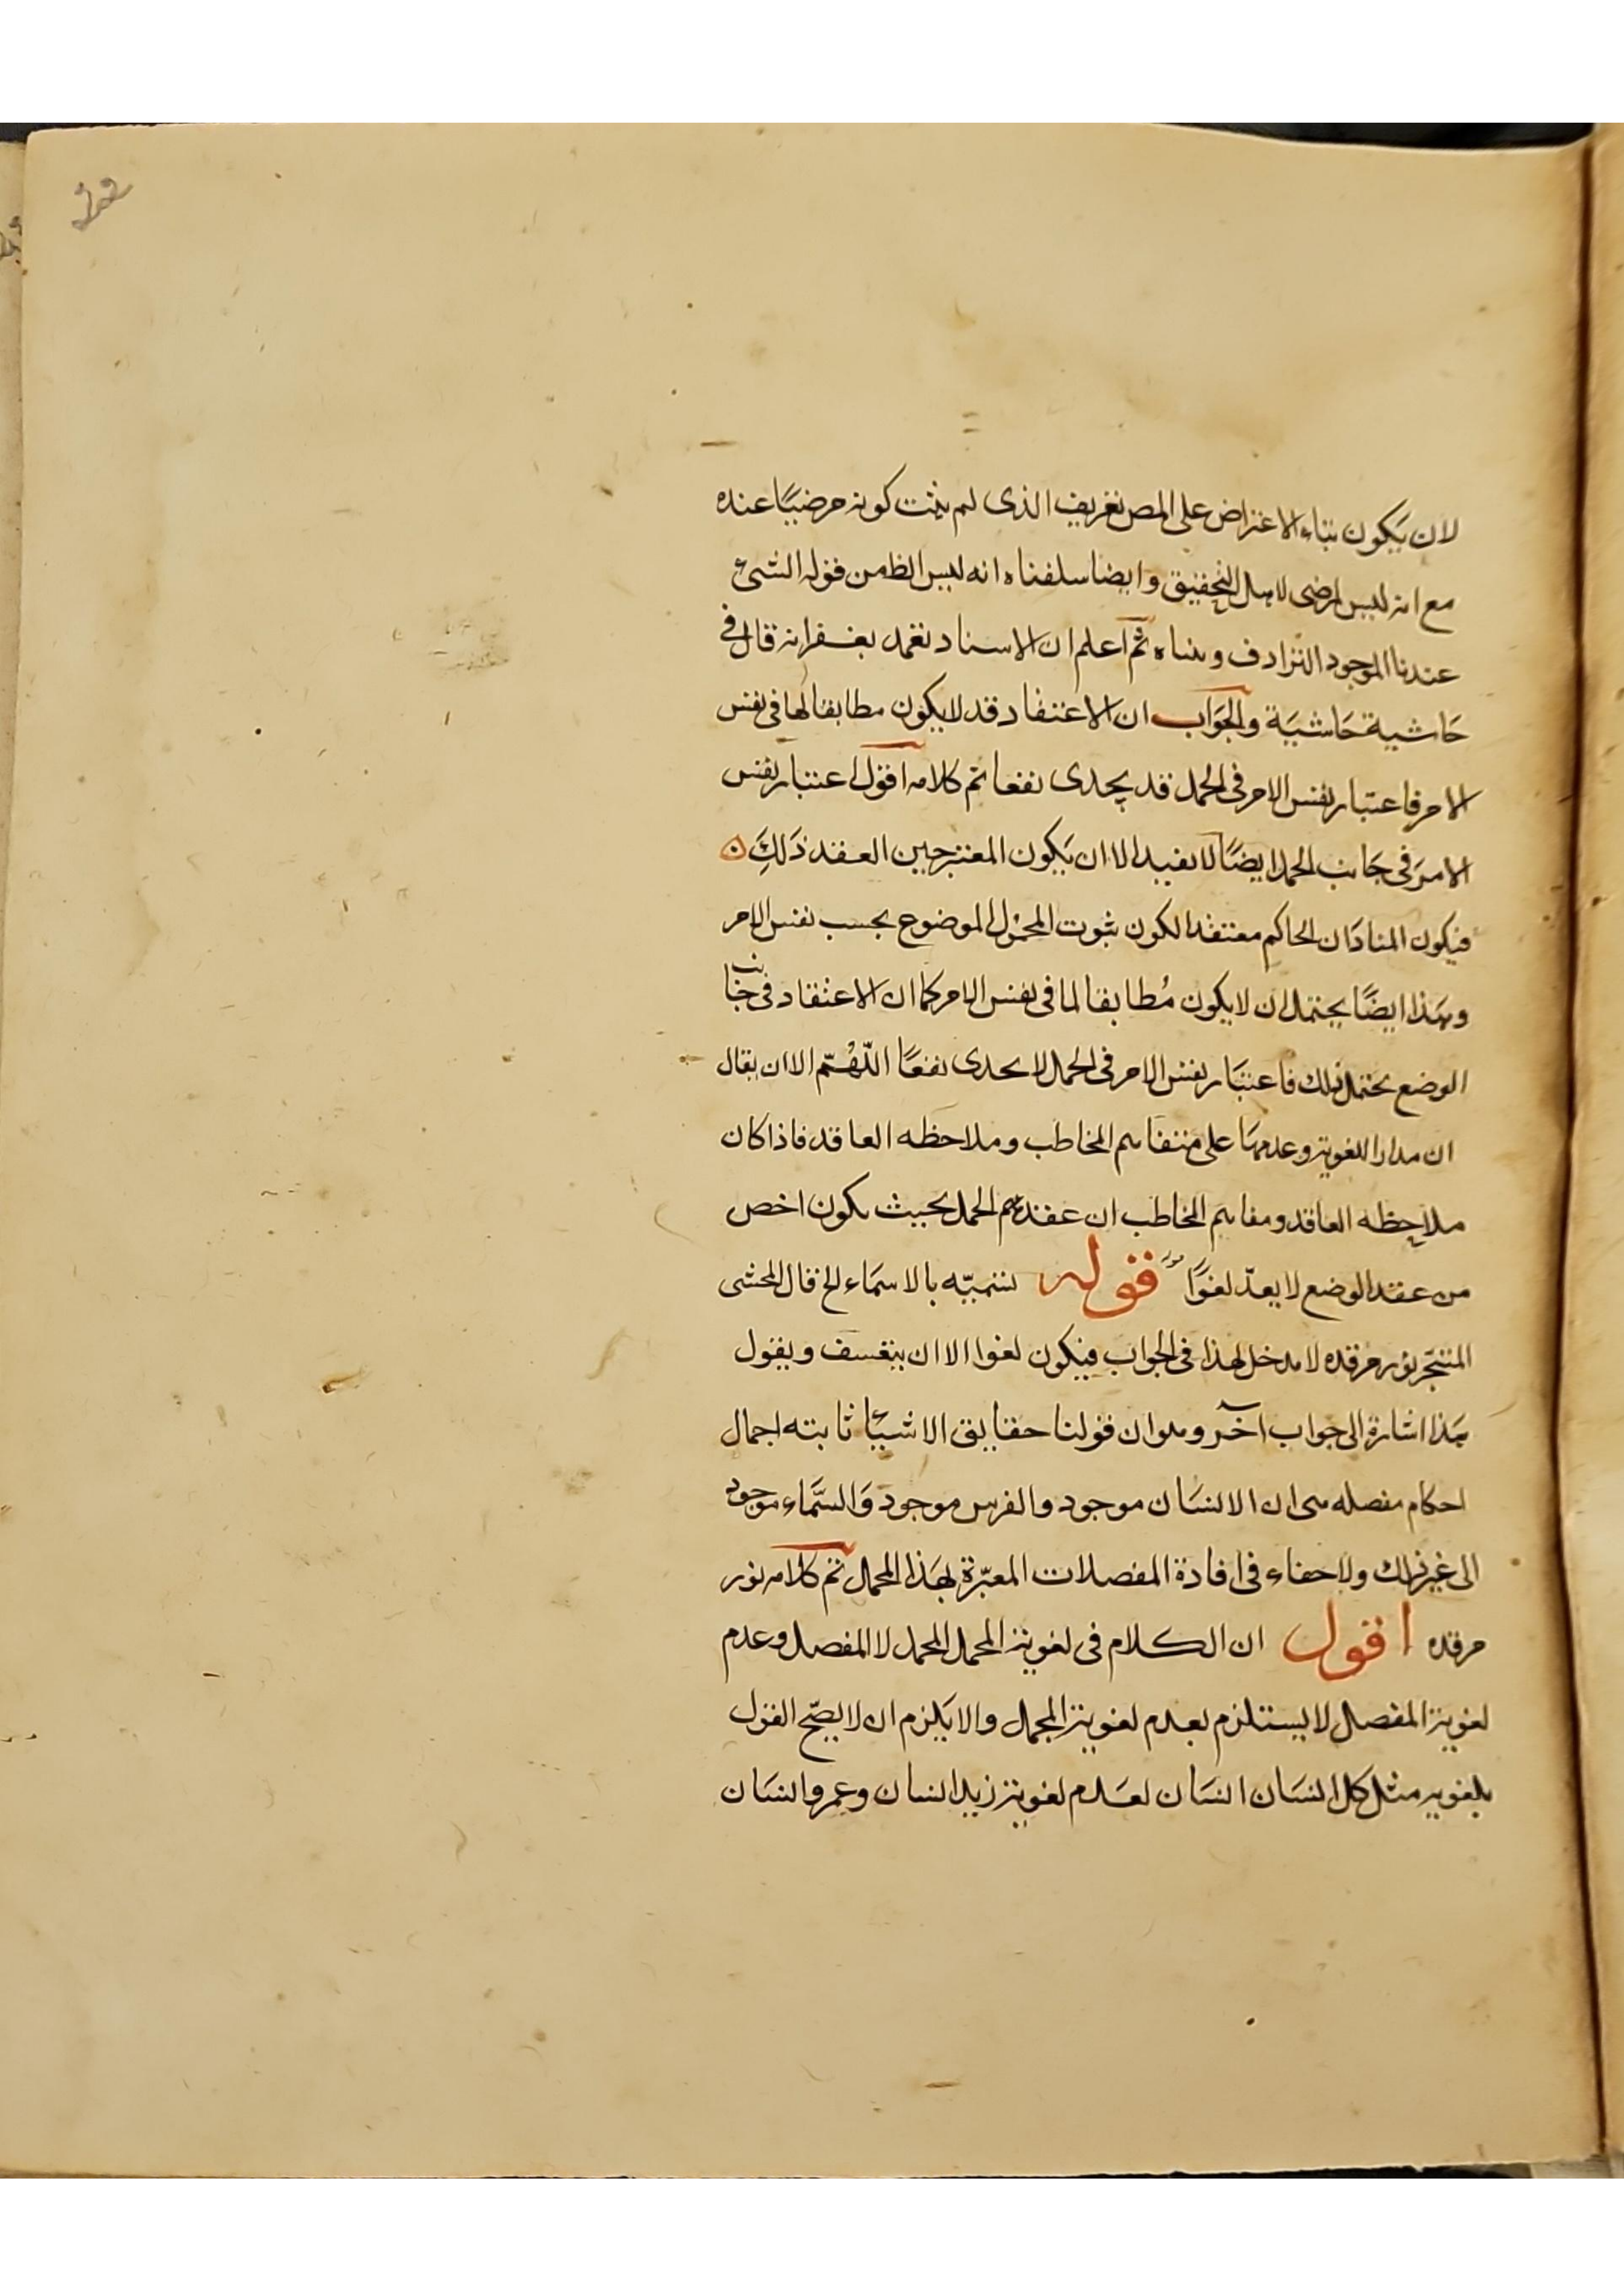 لان يكون بناء الاعتراض على المص تعريف الذى لم يثبت كونه مرضيًا عنده
مع انه ليس لمرضى لاهل التحقيق وايضا سلفناه انه ليس الظ من قوله الشئ
عندنا الموجود الترادف وبناه ثم اعلم ان الاستاد تغمد بغفرانه قال فى
حاشية حاشية والجواب ان الاعتقاد قد لا يكون مطابقا لها فى نفس
الامر فاعتبار نفس الامر فى الحمل قد يجدى نفعا تم كلامه اقول اعتبار نفس
الامر فى جانب الحمل ايضًا لا يفيد الا ان يكون المعتبر حين العقد ذلك
فيكون المناد ان الحاكم معتقد الكون ثبوت المحمول الموضوع بحسب نفس الامر
وهذا ايضًا يحتمل ان لا يكون مُطابقا لما فى نفس الامر كما ان الاعتقاد فى جانب
الوضع يحتمل ذلك فاعتبار نفس الامر فى الحمل لا يجدى نفعًا اللّهُمّ الا ان يقال
ان مدار اللغوية وعدمها على متفاهم المخاطب وملاحظه العاقد فاذا كان
ملاحظه العاقد ومفاهم المخاطب ان عقد الحمل بحيث يكون اخص
من عقد الوضع لا يعدّ لغوًا قوله نسميّه بالاسماء الخ قال المحشى
المتبحّر نور مرقده لا مدخل لهذا فى الجواب فيكون لغوا الا ان يتعسف ويقول
هذا اشارة الى جواب آخر وهو ان قولنا حقايق الاشيئا ثابته اجمال
احكام مفصله هى ان الانسان موجود والفرس موجود وَالسَّماء موجود
الى غير ذلك ولا خفاء فى افادة المفصلات المعبّرة بهذا المجمل تم كلامه نور
مرقده اقول ان الكلام فى لغوية المجمل المجمل لا المفصل وعدم
لغوية المفصل لا يستلزم بعدم لغوية المجمل والا يلزم ان لا يصّح القول
بلغويه مثل كل انسان انسان لعدم لغوية زيد انسان وعمرو انسان